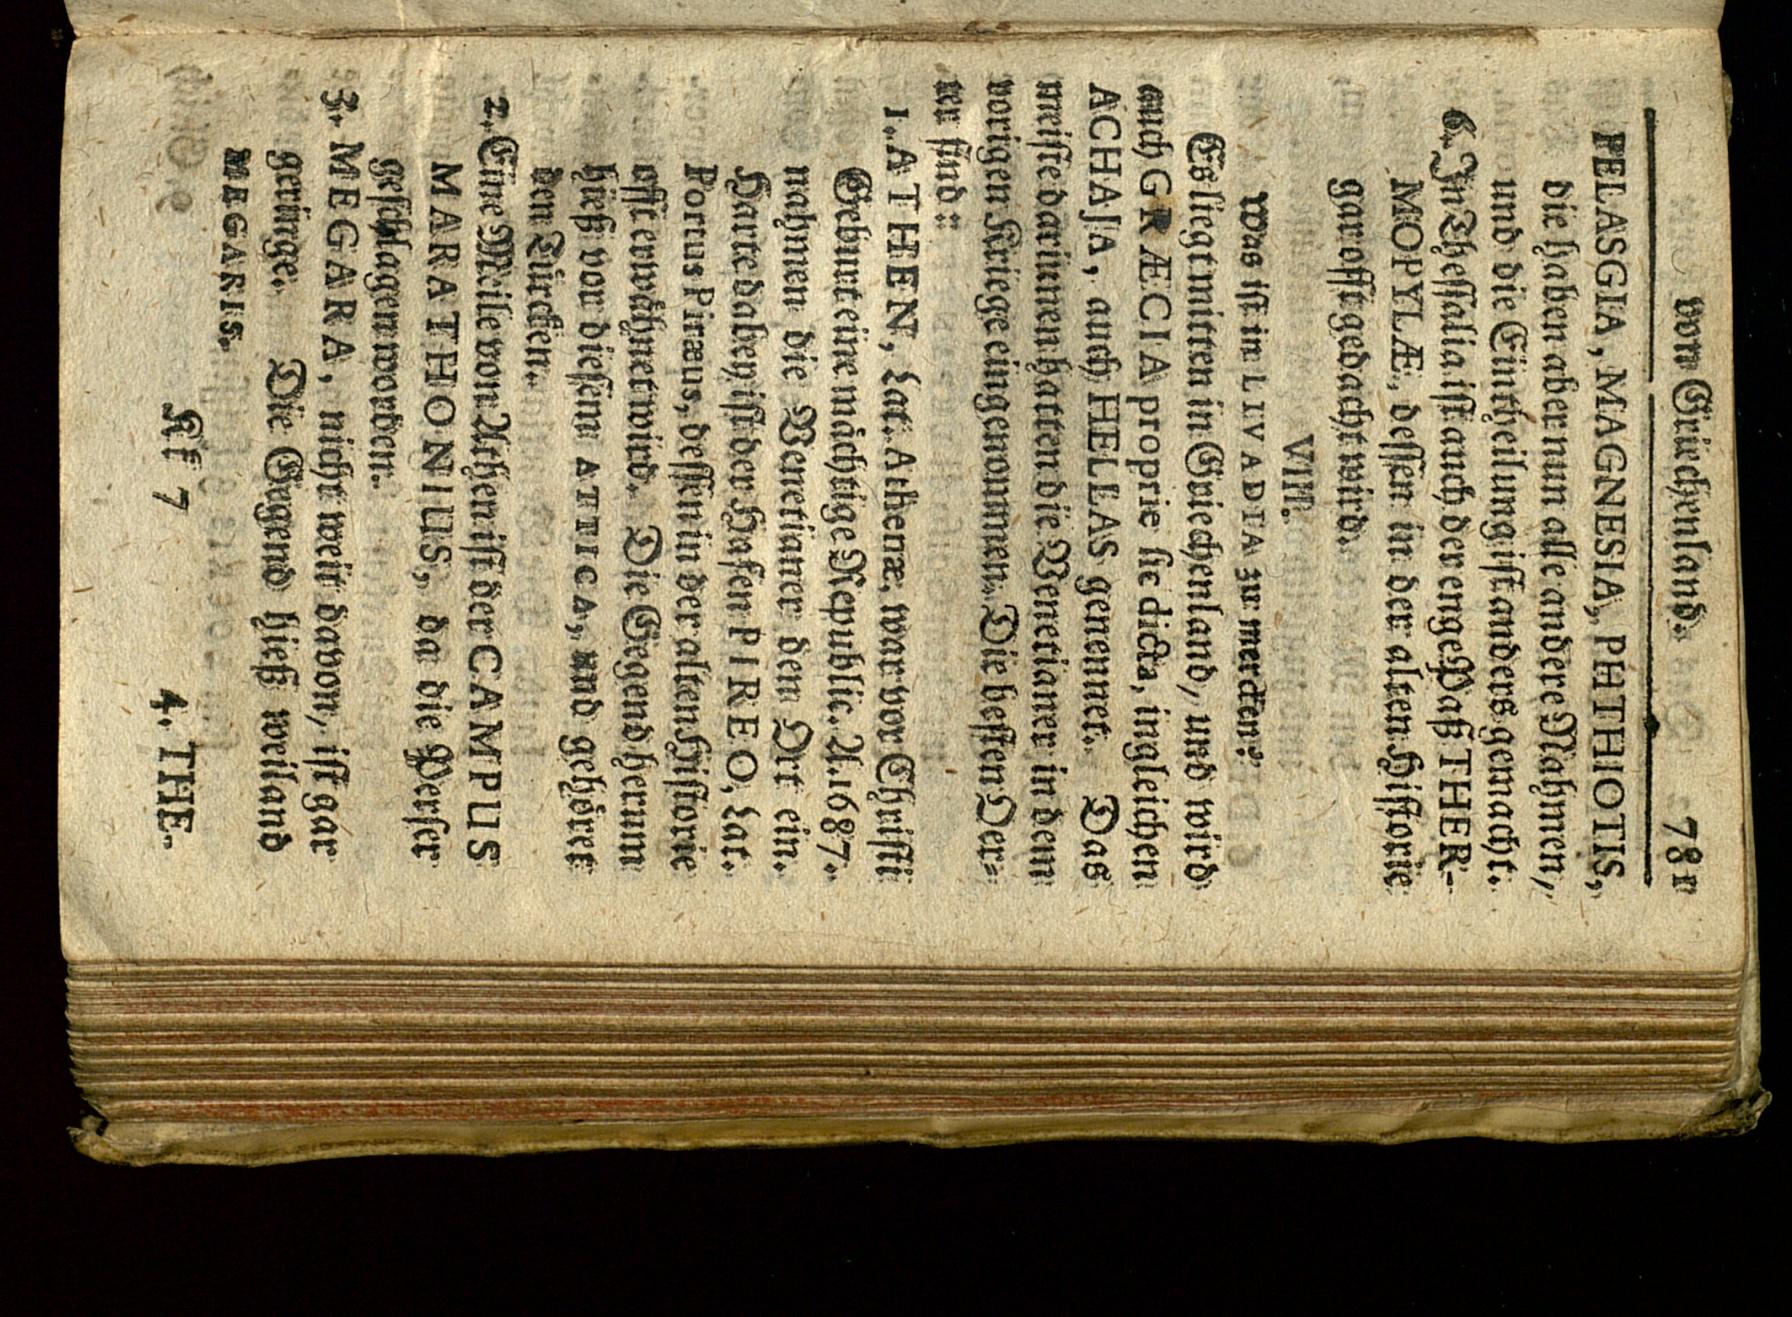 von Griechenland. 781
PELASGIA, MAGNESIA, PHTHIOTIS,
die haben aber nun alle andere Nahmen,
und die Eintheilung ist anders gemacht.
6. Jn Thessalia ist auch der enge Paß THER-
MOPYLÆ, dessen in der alten Historie
gar offt gedacht wird.
VIII.
Was ist in LIVADIA zu mercken?
Es liegt mitten in Griechenland, und wird
auch GRÆCIA proprie sic dicta, ingleichen
ACHAJA, auch HELLAS genennet. Das
meiste darinnen hatten die Venetianer in dem
vorigen Kriege eingenommen. Die besten Oer-
ter sind:
1. ATHEN, Lat. Athenæ, war vor Christi
Geburt eine mächtige Republic. A. 1687.
nahmen die Venetianer den Ort ein.
Harte dabey ist der Hafen PIREO, Lat.
Portus Piræus, dessen in der alten Historie
offt erwähnet wird. Die Gegend herum
hieß vor diesem ATTICA, und gehöret
den Türcken.
2. Eine Meile von Athen ist der CAMPUS
MARATHONIUS, da die Perser
geschlagen worden.
3. MEGARA, nicht weit davon, ist gar
geringe. Die Gegend hieß weiland
MEGARIS.
Kk 7 4. THE-